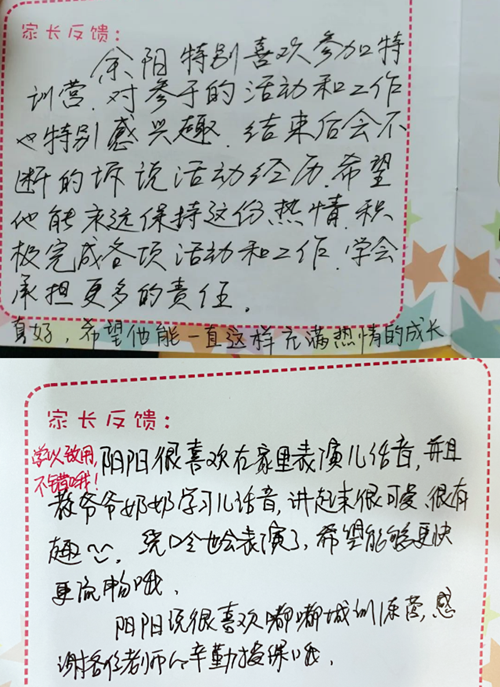 家长反馈：
余阳特别喜欢参加特
训营．对参于的活动和工作
也特别感兴趣．结束后会不
断的诉说活动经历．希望
他能永远保持这份热情．积
极完成各项活动和工作．学会
承担更多的责任．
真好，希望他能一直这样充满热情的成长
家长反馈：
学以致用，
不错哦！
阳阳很喜欢在家里表演儿话音，并且
教爷爷奶奶学习儿话音，讲起来很可爱、很有
趣，绕口令也会表演了，希望能够更快
更流畅哦．
阳阳说很喜欢嘟嘟城训练营，感
谢各位老师的辛勤授课哦．